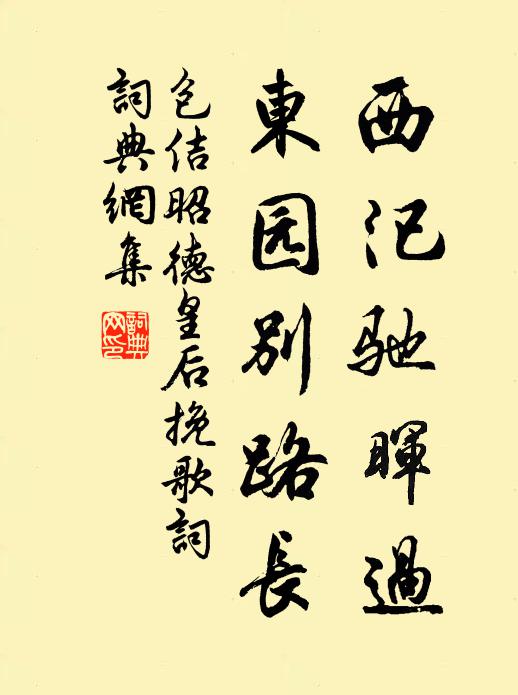 西汜驰暉過
東园别路長
包佶昭德皇后挽歌詞
詞典網集
詞典網印